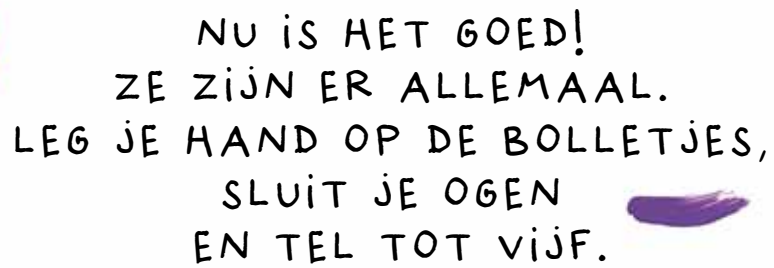 NU iS HET GOED!
ZE ZijN ER ALLEMAAL.
LEG jE HAND OP DE BOLLETjES,
SLUiT jE OGEN
EN TEL TOT VijF.